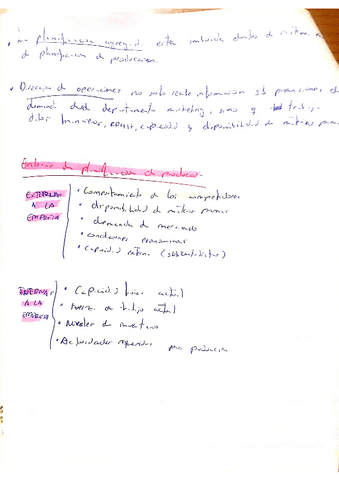 • La planificación agregada esta incluida dentro de
de planificación de producción.
• Dirección de operaciones no solo recibe información sb previsiones de
demanda desde departamento marketing, sino q trabaja
datos financieros, RRHH, capacidad y disponibilidad de materias primas
Entorno de planificación de producción
EXTERNAS A LA EMPRESA
• Comportamiento de los competidores
• disponibilidad de materias primas
• demanda de mercado
• condiciones económicas
• Capacidad externa (subcontratistas)
INTERNAS A LA EMPRESA
• Capacidad física actual
• Fuerza de trabajo actual
• Niveles de inventario
• Actividades requeridas para producción